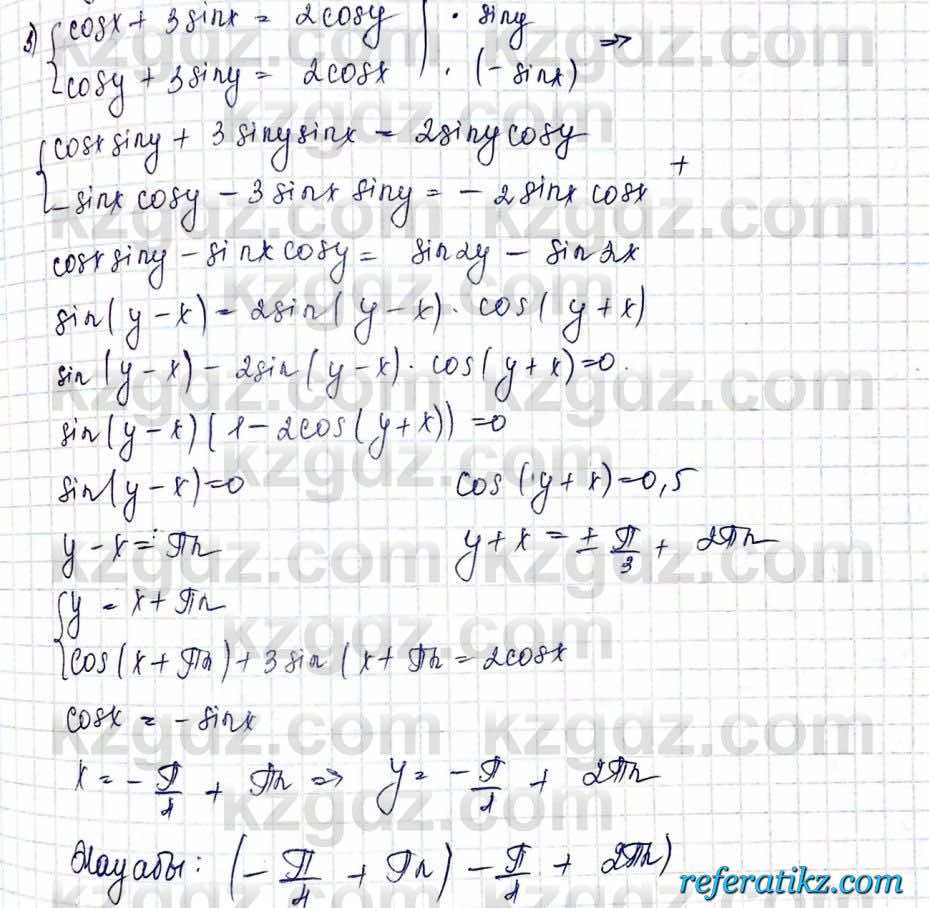 3) { cosx + 3 sinx = 2cosy | · siny
{ cosy + 3 siny = 2cosx | · (- sinx) ⇒
{ cosx siny + 3 siny sinx = 2siny cosy
{ - sinx cosy - 3 sinx siny = - 2 sinx cosx +
cosx siny - sinx cosy = sin2y - sin2x
sin(y-x) = 2sin(y-x) · cos(y+x)
sin(y-x) - 2sin(y-x) · cos(y+x)=0.
sin(y-x)(1-2cos(y+x))=0
sin(y-x)=0 cos(y+x)=0,5
y-x = πn y+x = ± π/3 + 2πn
{ y = x + πn
{ cos(x+πn)+3 sin(x+πn = 2cosx
cosx = - sinx
x = - π/4 + πn ⇒ y = - π/4 + 2πn
Жауабы: (- π/4 + πn) - π/4 + 2πn)
kzgdz.com
referatikz.com